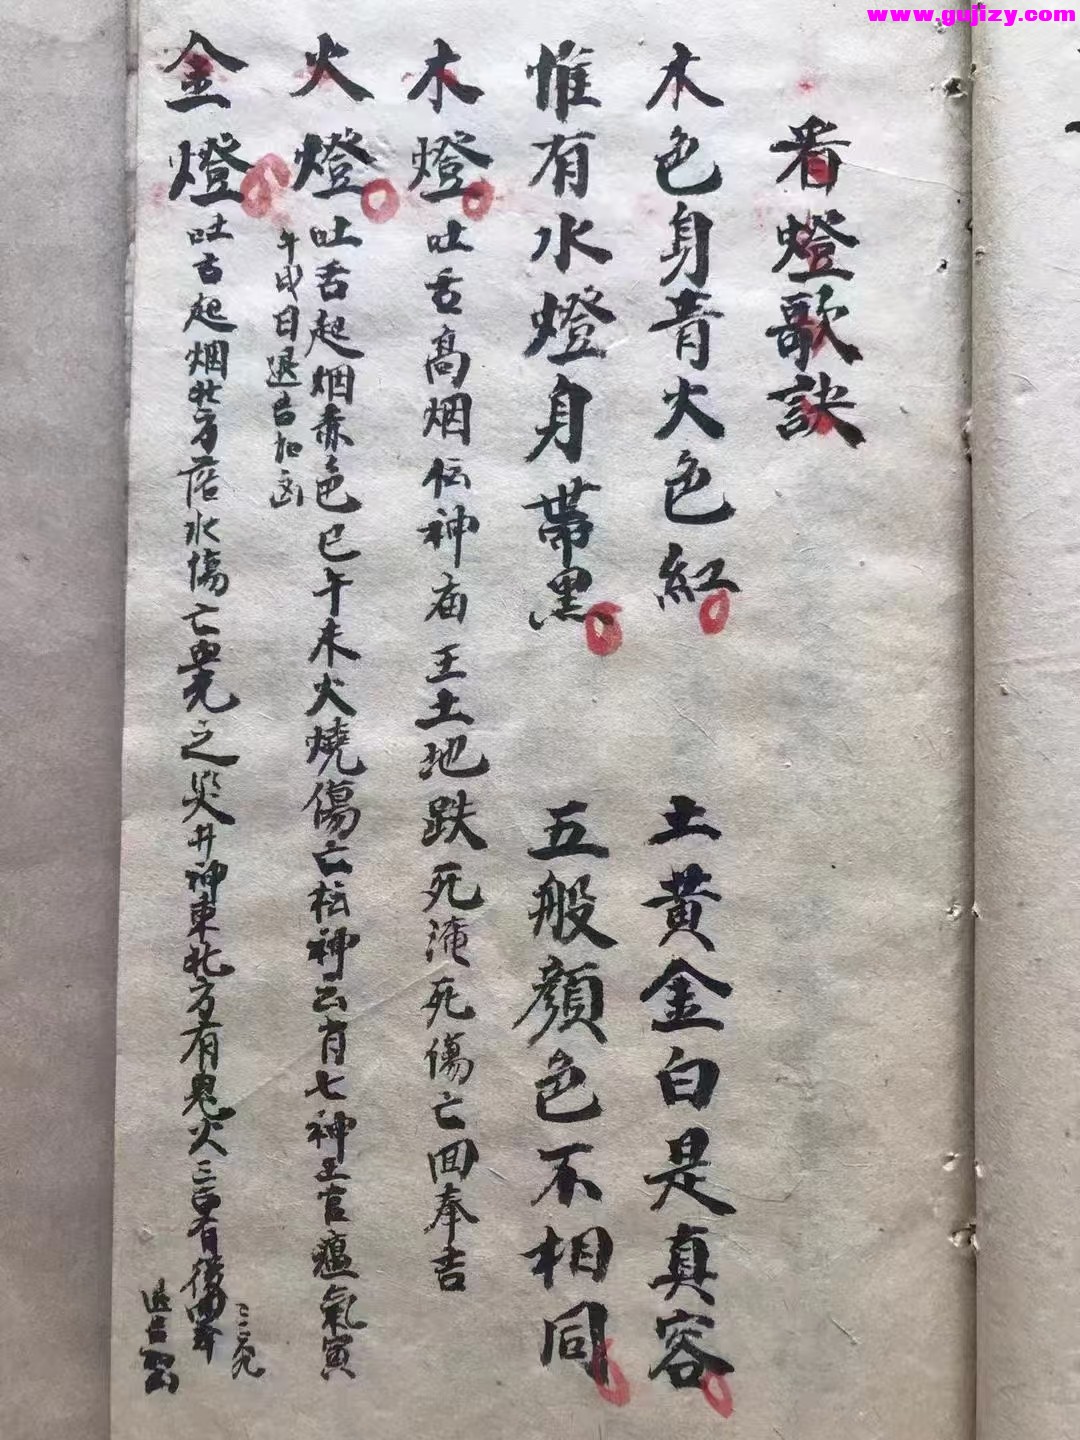 www.gujizy.com
看燈歌訣
木色身青火色紅 土黄金白是真容
惟有水燈身帶黑 五般顔色不相同
木燈 吐舌高烟伝神庙王土地跌死淹死傷亡回奉吉
火燈 吐舌起烟赤色巳午未火燒傷亡枟神云肖七神王官瘟氣寅
午戌日退吉加凶
金燈 吐舌起烟北方落水傷亡 之災井神東北方有鬼火三 有
退吉